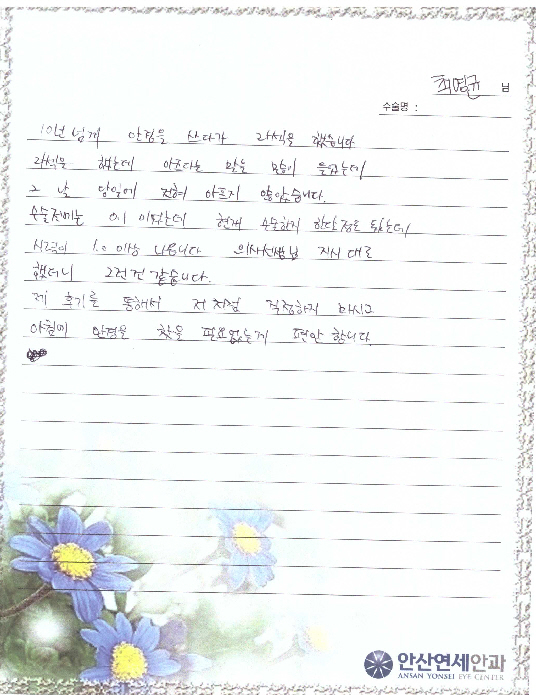 최영균 님
수술명 :
10년 넘게 안경을 쓰다가 라섹을 했습니다
라섹을 했는데 아프다는 말을 많이 들었는데
그 날 당일에 전혀 아프지 않았습니다.
수술전에는 0.1 이였는데 현재 수술한지 한달정도 됐는데
시력이 1.0 이상 나옵니다 의사선생님 지시 대로
했더니 그런건 같습니다.
제 후기를 통해서 걱정하지 마시고
아침에 안경을 찾을 필요없는게 편안 합니다.
안산연세안과
ANSAN YONSEI EYE CENTER